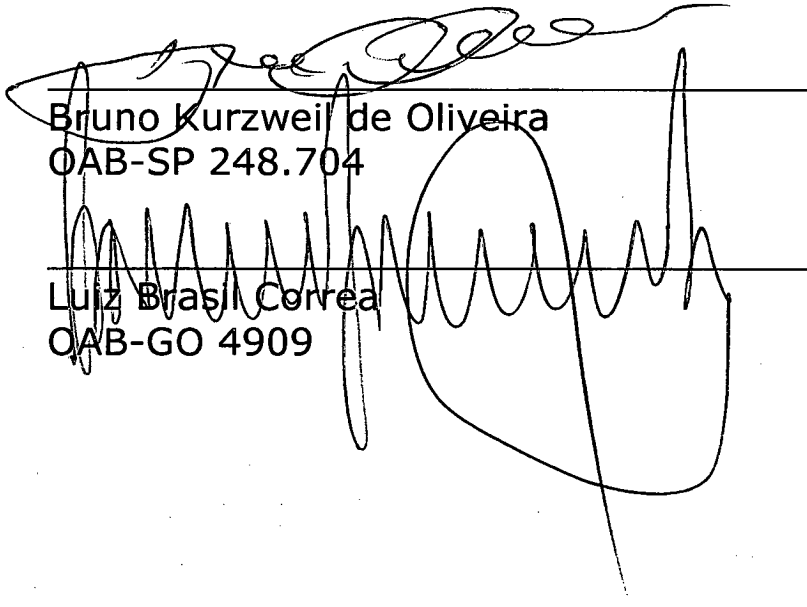 Bruno Kurzweil de Oliveira
OAB-SP 248.704
Luiz Brasil Correa
OAB-GO 4909